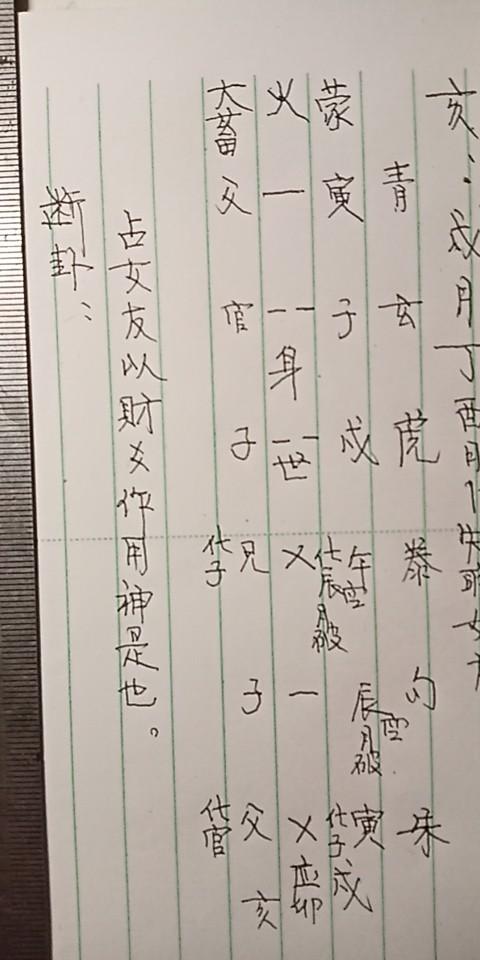 亥：戌月丁酉日卜失
青玄虎螣勾朱
蒙寅子戌午空化辰月破辰空月破寅化子戌
火一--身--世X一X应卯
大畜父官子兄化子子父化官亥
占女友以財爻作用神是也。
断卦：